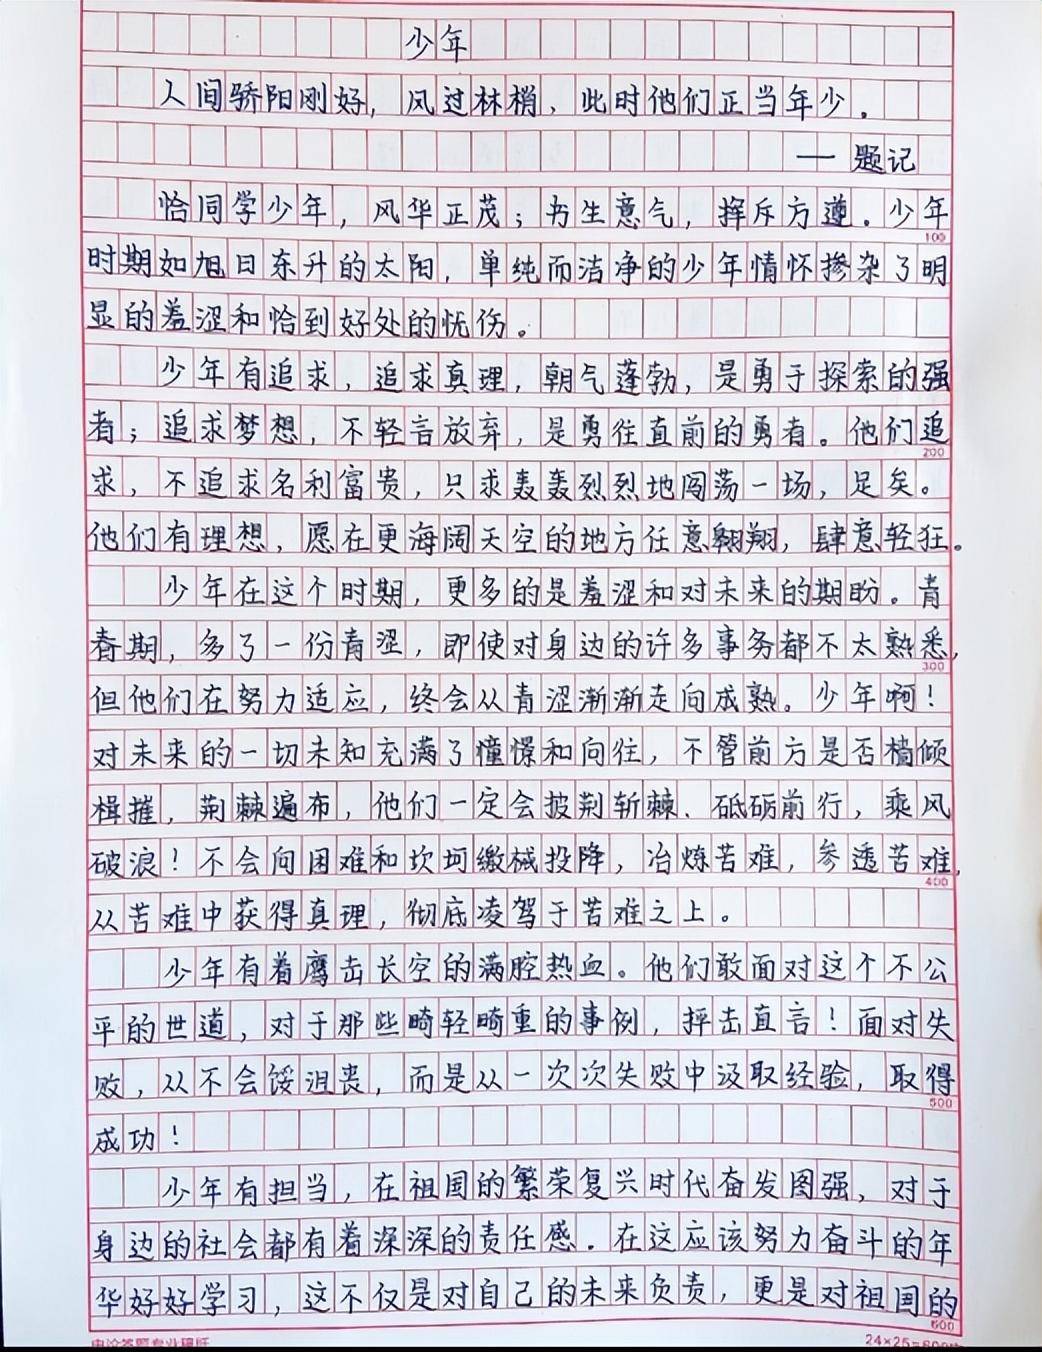 少年
人间骄阳刚好，风过林梢，此时他们正当年少。
—— 题记
恰同学少年，风华正茂；书生意气，挥斥方遒。少年
100
时期如旭日东升的太阳，单纯而洁净的少年情怀掺杂了明
显的羞涩和恰到好处的忧伤。
少年有追求，追求真理，朝气蓬勃，是勇于探索的强
者；追求梦想，不轻言放弃，是勇往直前的勇者。他们追
200
求，不追求名利富贵，只求轰轰烈烈地闯荡一场，足矣。
他们有理想，愿在更海阔天空的地方任意翱翔，肆意轻狂。
少年在这个时期，更多的是羞涩和对未来的期盼。青
春期，多了一份青涩，即使对身边的许多事务都不太熟悉，
300
但他们在努力适应，终会从青涩渐渐走向成熟。少年啊！
对未来的一切未知充满了憧憬和向往，不管前方是否樯倾
楫摧，荆棘遍布，他们一定会披荆斩棘、砥砺前行，乘风
破浪！不会向困难和坎坷缴械投降，冶炼苦难，参透苦难，
400
从苦难中获得真理，彻底凌驾于苦难之上。
少年有着鹰击长空的满腔热血。他们敢面对这个不公
平的世道，对于那些畸轻畸重的事例，抨击直言！面对失
败，从不会馁沮丧，而是从一次次失败中汲取经验，取得
500
成功！
少年有担当，在祖国的繁荣复兴时代奋发图强，对于
身边的社会都有着深深的责任感。在这应该努力奋斗的年
华好好学习，这不仅是对自己的未来负责，更是对祖国的
600